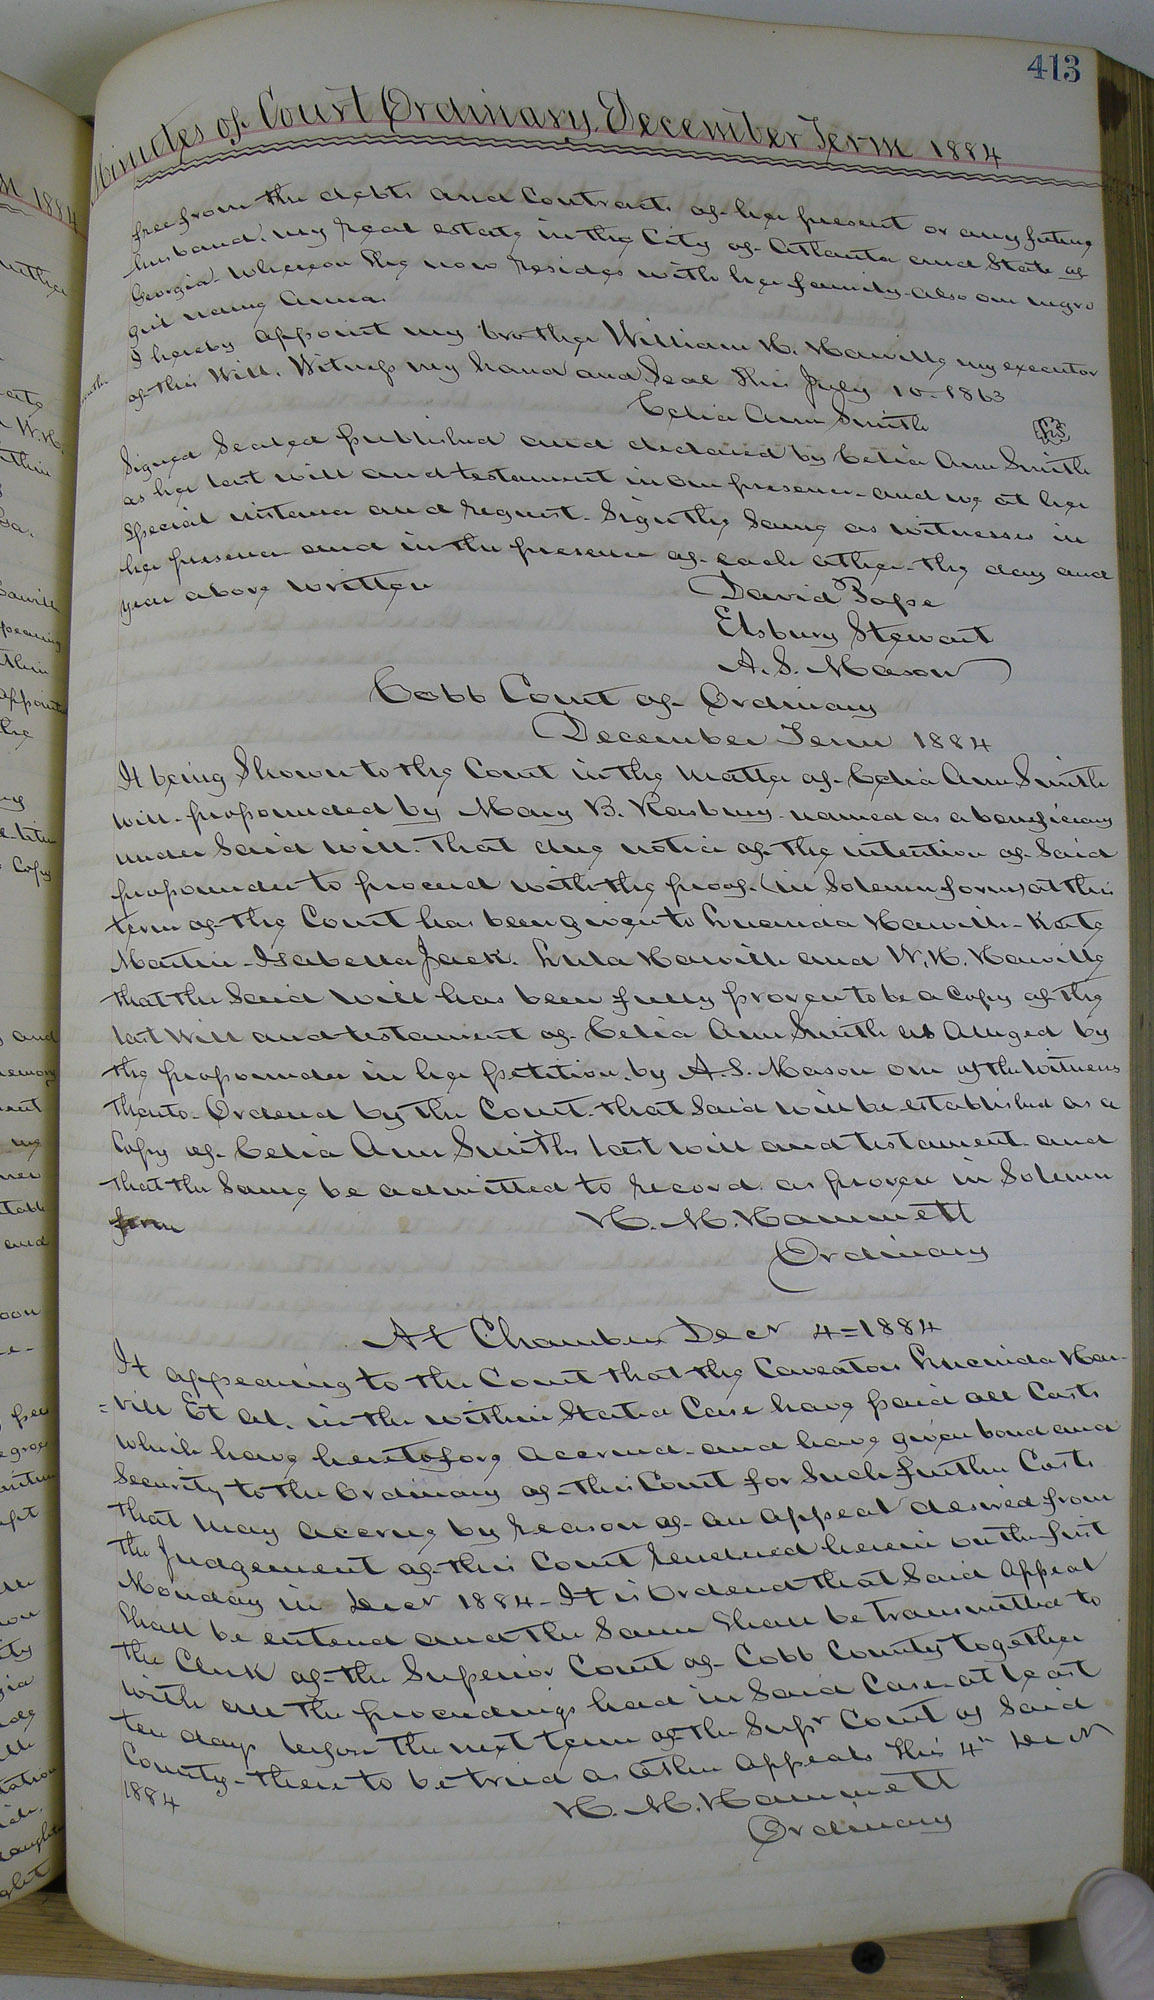 413
Minutes of Court Ordinary, December Term 1884
free from the debts and Contracts of her present or any future
husband. my real estate in the City of Atlanta and State of
Georgia. Whereon She now resides with her family. also one negro
girl name Anna.
I hereby appoint my brother William H. Harville my executor
of this Will. Witness my hand and Seal This July 10-1863
Celia Ann Smith LS
Signed Sealed published and declared by Celia Ann Smith
as her last will and testament in our presence and we at her
Special instance and request. Sign the Same as witnesses in
her presence and in the presence of each other the day and
year above written
David Pope
Elsbury Stewart
A. S. Mason
Cobb Court of Ordinary
December Term 1884
It being Shown to the Court in the Matter of Celia Ann Smith
will. propounded by Mary B. Rasbury named as a beneficiary
under Said will. That due notice of the intention of Said
propounder to proceed with the proof (in Solemn form) at this
term of the Court has been given to Lucinda Harvill - Kate
Martin - Isabella Jack. Lula Harvill and W. H. Harville
that the Said Will has been fully proven to be a Copy of the
last Will and testament of Celia Ann Smith as Alleged by
the propounder in her petition. by A. S. Mason one of the witness
thereto. Ordered by the Court. that Said will be established as a
Copy of Celia Ann Smiths last will and testament and
that the Same be admitted to record as proven in Solemn
form H. M. Hammett
Ordinary
At Chambers Decr 4=1884
It appearing to the Court that the Caveators Lucinda Har-
=vill Et al. in the within Stated Case have paid all Costs
which have heretofore accrued and have given bond and
Security to the Ordinary of this Court for Such further Costs
that may accrue by reason of an appeal desired from
the Judgement of this Court rendered herein on the first
Monday in Decr 1884 - It is Ordered that Said Appeal
Shall be entered and the Same Shall be transmitted to
the Clerk of the Superior Court of Cobb County together
with all the proceedings had in Said Case at least
ten days before the next term of the Supr Court of Said
County - there to be tried as other Appeals This 4th Decr
1884
H. M. Hammett
Ordinary